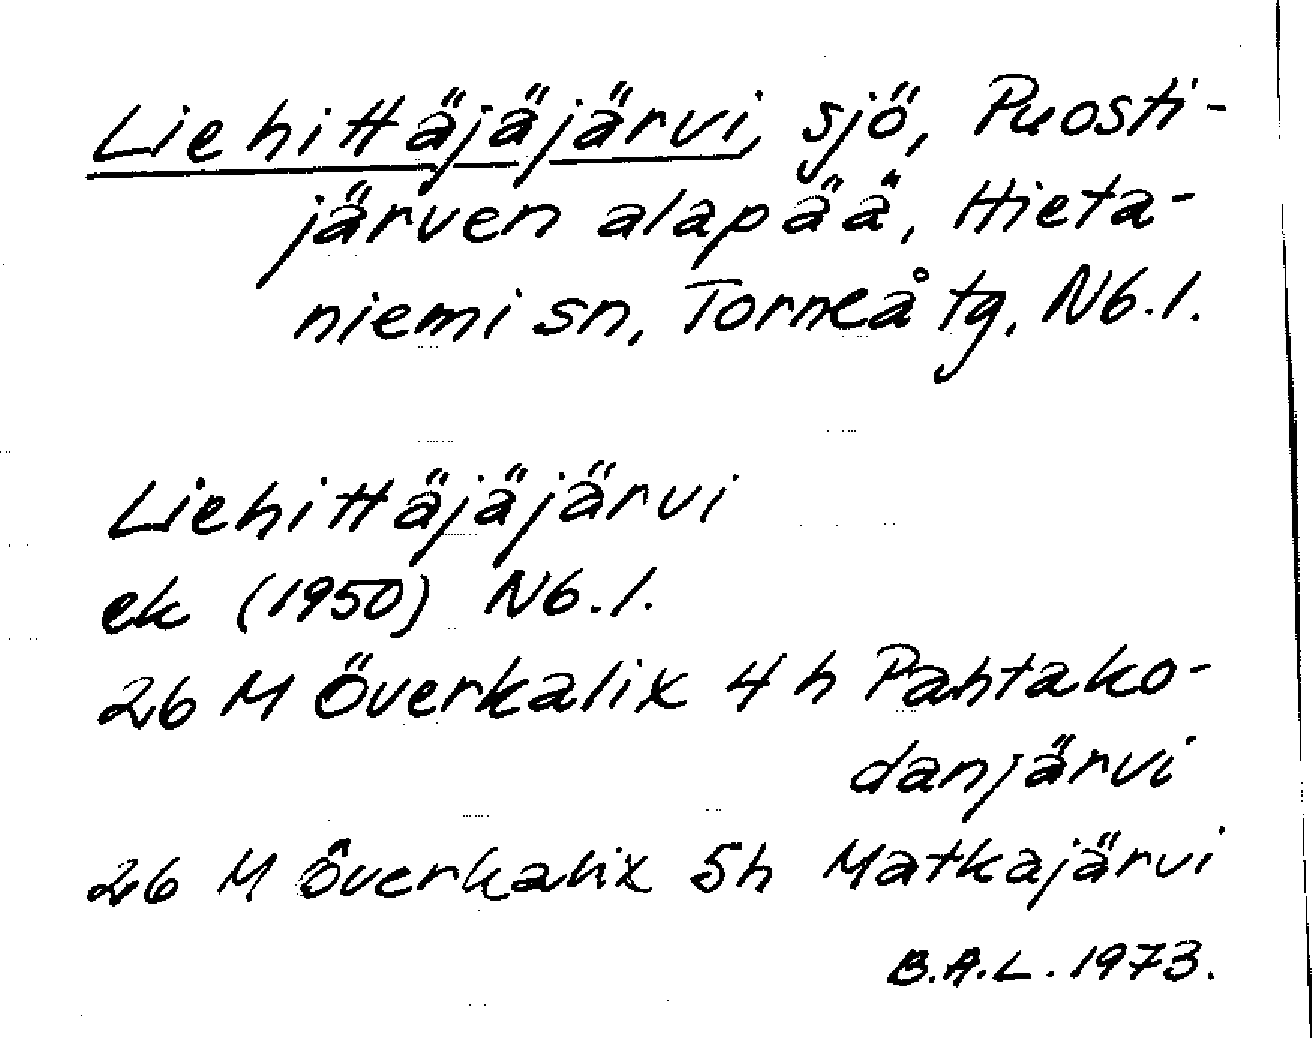 Liehittäjäjärvi, sjö, Puosti-
järven alapää, Hieta-
niemi sn, Torneå tg, Nb.l.
Liehittäjäjärvi
ek (1950) Nb.l.
26 M Överkalix 4 h Pahtako-
danjärvi
26 M Överkalix 5h Matkajärvi
B.A.L. 1973.